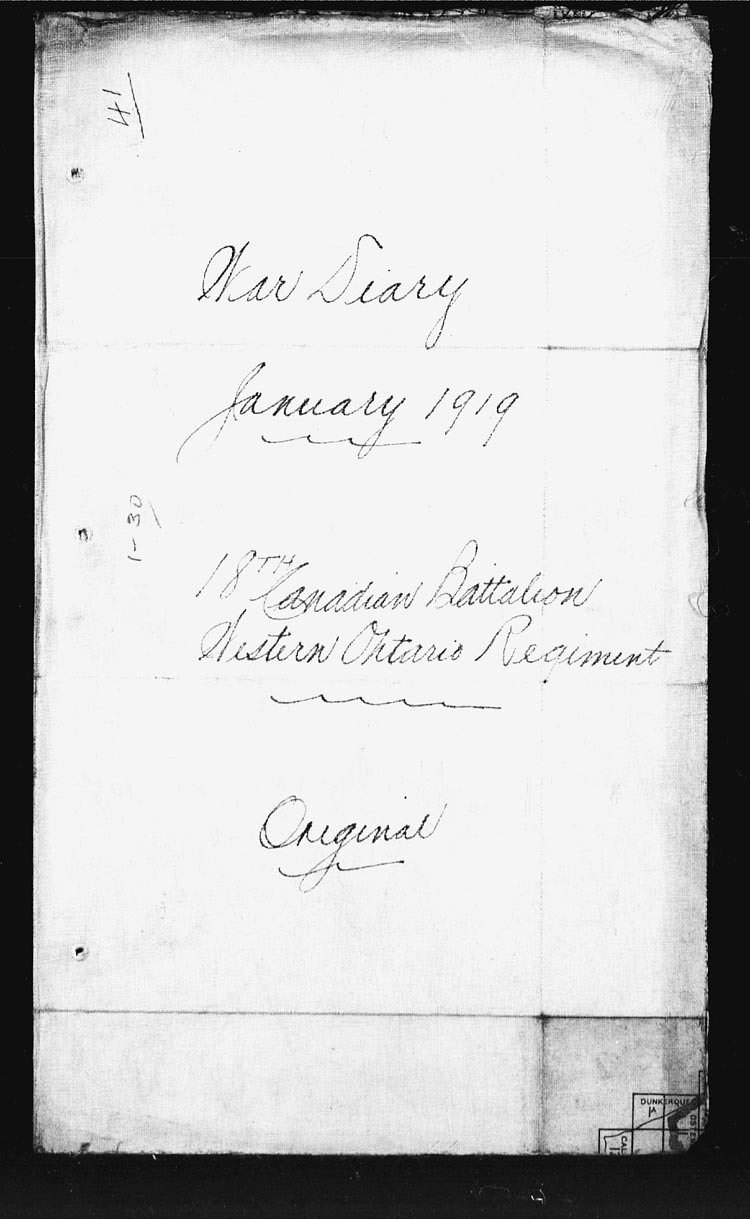 41
War Diary
January 1919
1-30
18TH Canadian Battalion
Western Ontario Regiment
Original
DUNKERQUE
1A